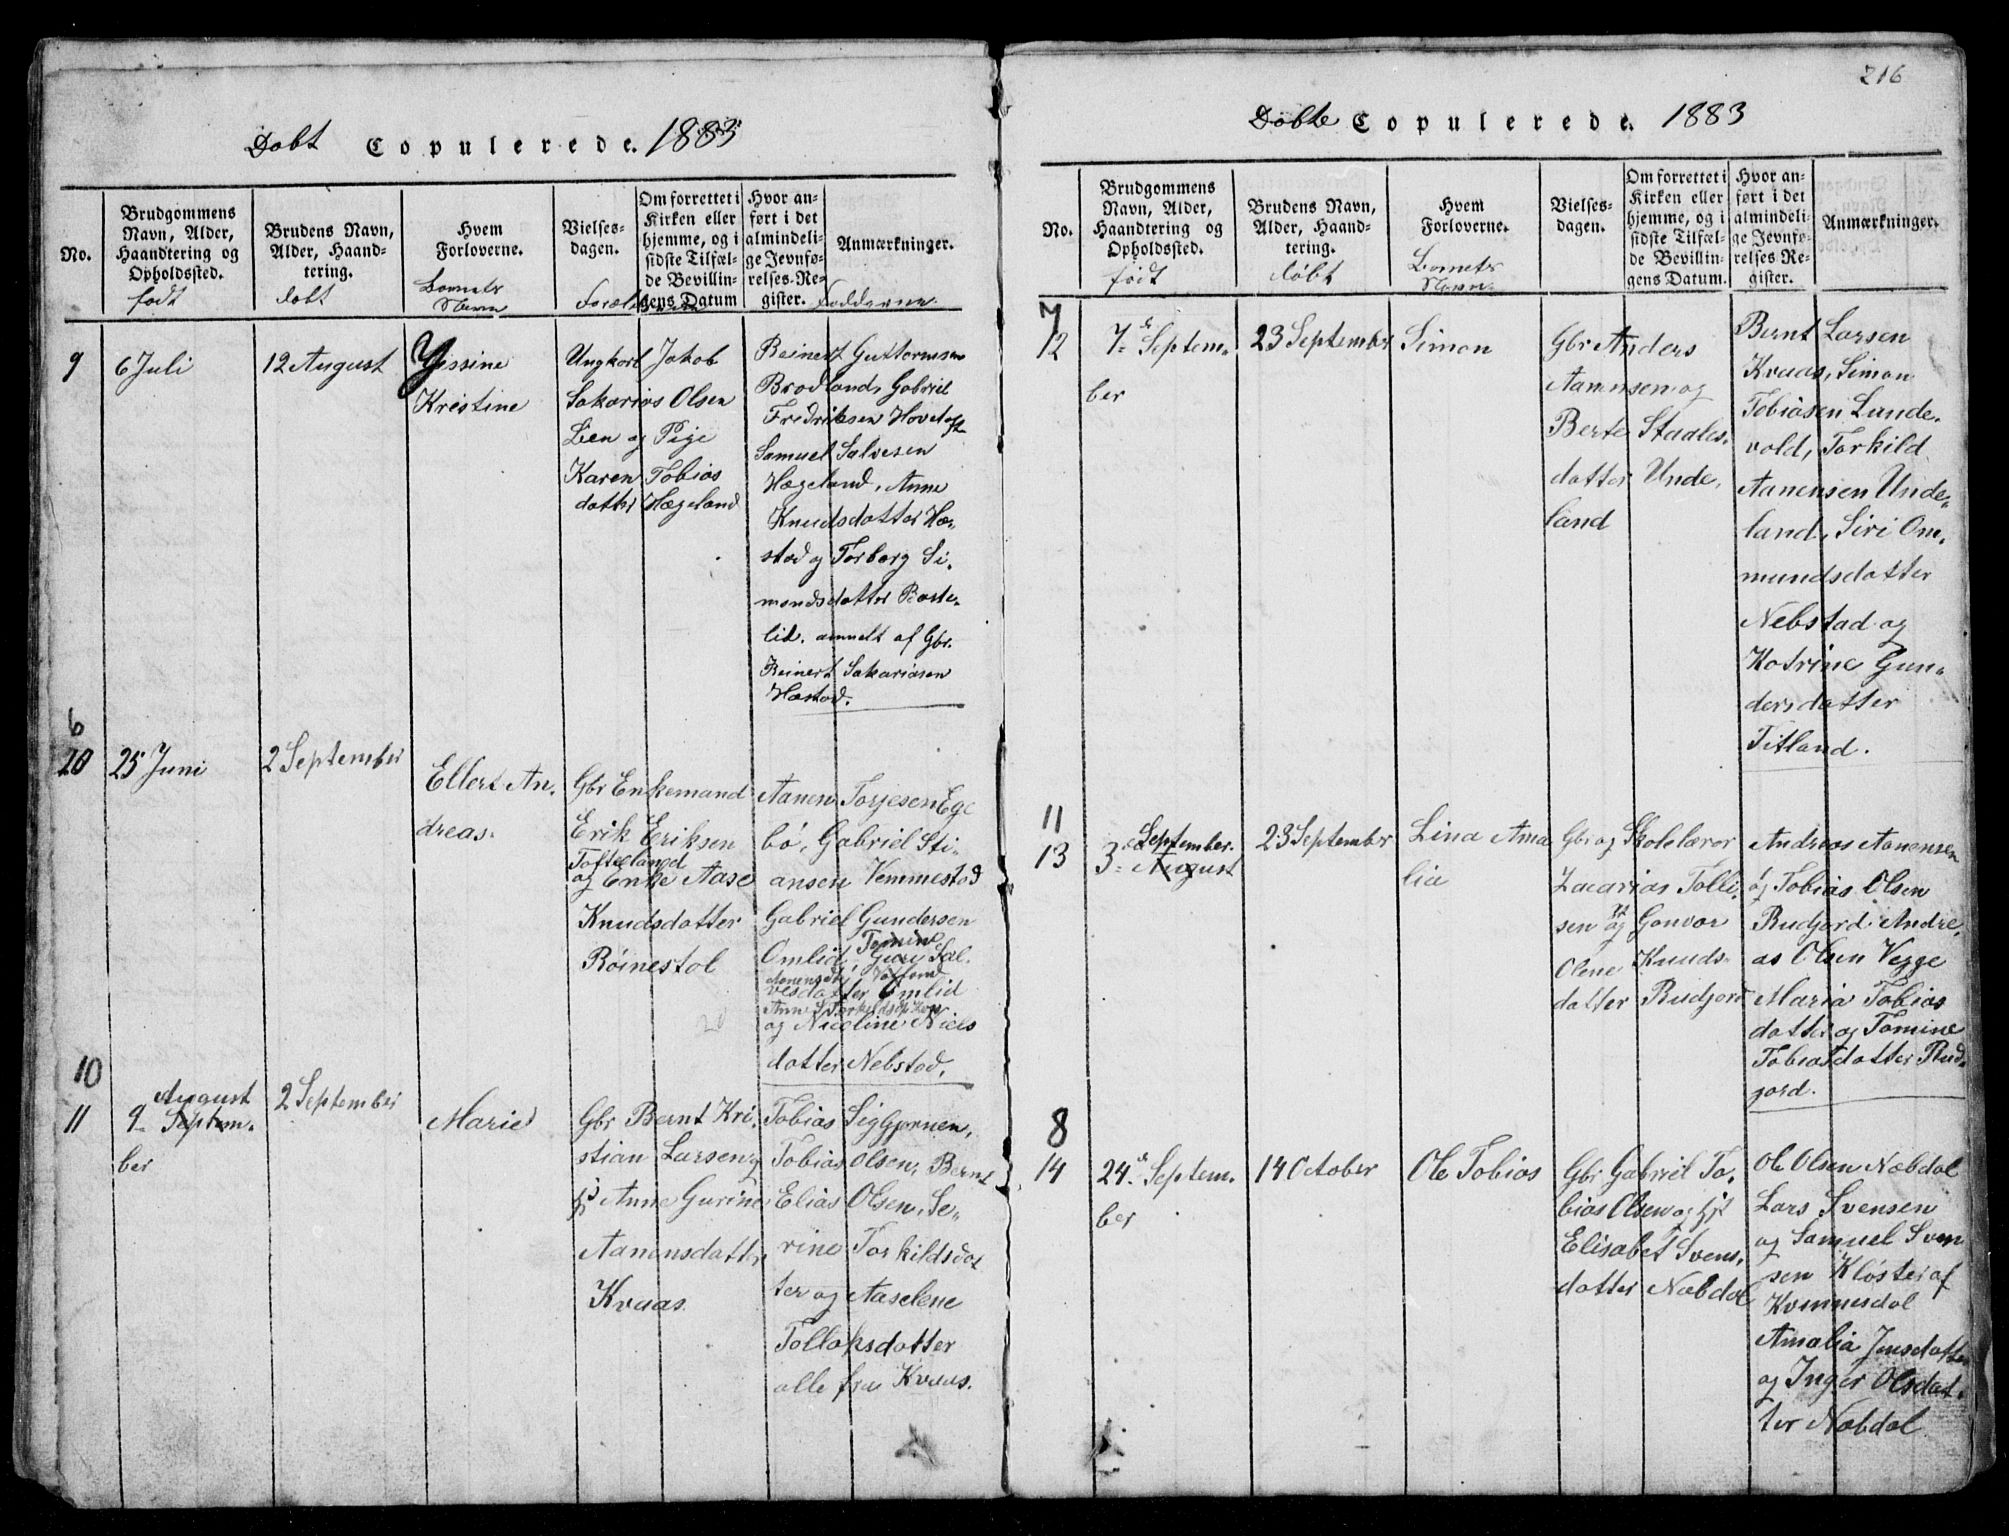 Døbt Copulerede. 1883
No.
Brudgommens
Navn, Alder,
Haandtering og
Opholdssted.
født
Brudens Navn,
Alder, Haand-
tering.
døbt
Hvem
Forloverne.
Barnets
Navn
Vielses-
dagen.
Om forrettet i
Kirken eller
hjemme, og i
sidste Tilfæl-
de Bevillin-
gens Datum
Hvor an-
ført i det
almindeli-
ge Jevnfø-
relses-Re-
gister.
Anmærkninger.
Fadderne
9
6 Juli
12 August
Gissine
Kristine
Ungkarl Jakob
Sakarias Olsen
Lien og Pige
Karen Tobias
datter Hægeland
Reinert Guttormsen
Brodland, Gabriel
Fredriksen Hovetoft
Samuel Salvesen
Hægeland, Anne
Knudsdatter Hæ-
stad og Torborg Si-
mondsdatter Baste-
lid. anmelt af Gbr.
Reinert Sakariasen
Hæstad.
6
10
25 Juni
2 September
Ellert An-
dreas.
Gbr Enkemand
Erik Eriksen
Tofteland
og Enke Aase
Knudsdatter
Røinestol
Aanen Torjesen Ege
bø, Gabriel Sti-
ansen Vemmestad
Gabriel Gundersen
Tomine
Omlid, Guri Sal-
vesdatter Omlid
og Nicoline Niels
datter Nebstad.
10
11
August
9 Septem-
ber
2 September
Marie
Gbr Bernt Kri-
stian Larsen og
Anne Gurine
Aanensdatter
Kvaas.
Tobias Siggjornen,
Tobias Olsen, Bernt
Elias Olsen, Se-
rine Torkildsdat
ter og Aaselene
Tollaksdatter
alle fra Kvaas.
216
Døbte Copulerede. 1883
No.
Brudgommens
Navn, Alder,
Haandtering og
Opholdssted.
født
Brudens Navn,
Alder, Haand-
tering.
døbt
Hvem
Forloverne.
Barnets
Navn.
Vielses-
dagen.
Om forrettet i
Kirken eller
hjemme, og i
sidste Tilfæl-
de Bevillin-
gens Datum.
Hvor an-
ført i det
almindeli-
ge Jevnfø-
relses Re-
gister.
Anmærkninger.
7
12
7de Septem-
ber
23 September
Simon
Gbr Anders
Aanensen og
Berte Staales-
datter Unde-
land
Bernt Larsen
Kvaas, Simon
Tobiasen Lunde-
vold, Torkild
Aanensen Unde-
land, Siri Om-
mundsdatter
Nebstad og
Katrine Gun-
dersdatter
Titland.
11
13
September.
3de August
23 September
Lina Ama
lia
Gbr og Skolelærer
Zacarias Tolli-
sen og Gonvor
Olene Knuds-
datter Rudjord
Andreas Aanensen
og Tobias Olsen
Rudjord Andre-
as Olsen Vegge
Maria Tobias
datter og Tomine
Tobiasdatter Rud-
jord.
8
14
24de Septem-
ber
14 October
Ole Tobias
Gbr Gabriel To-
bias Olsen og Hst
Elisabet Svens-
datter Næbdal
Ole Olsen Næbdal
Lars Svensen
og Samuel Sven
sen Kløster af
Kvinnesdal
Amalia Jensdatter
og Inger Olsdat-
ter Næbdal